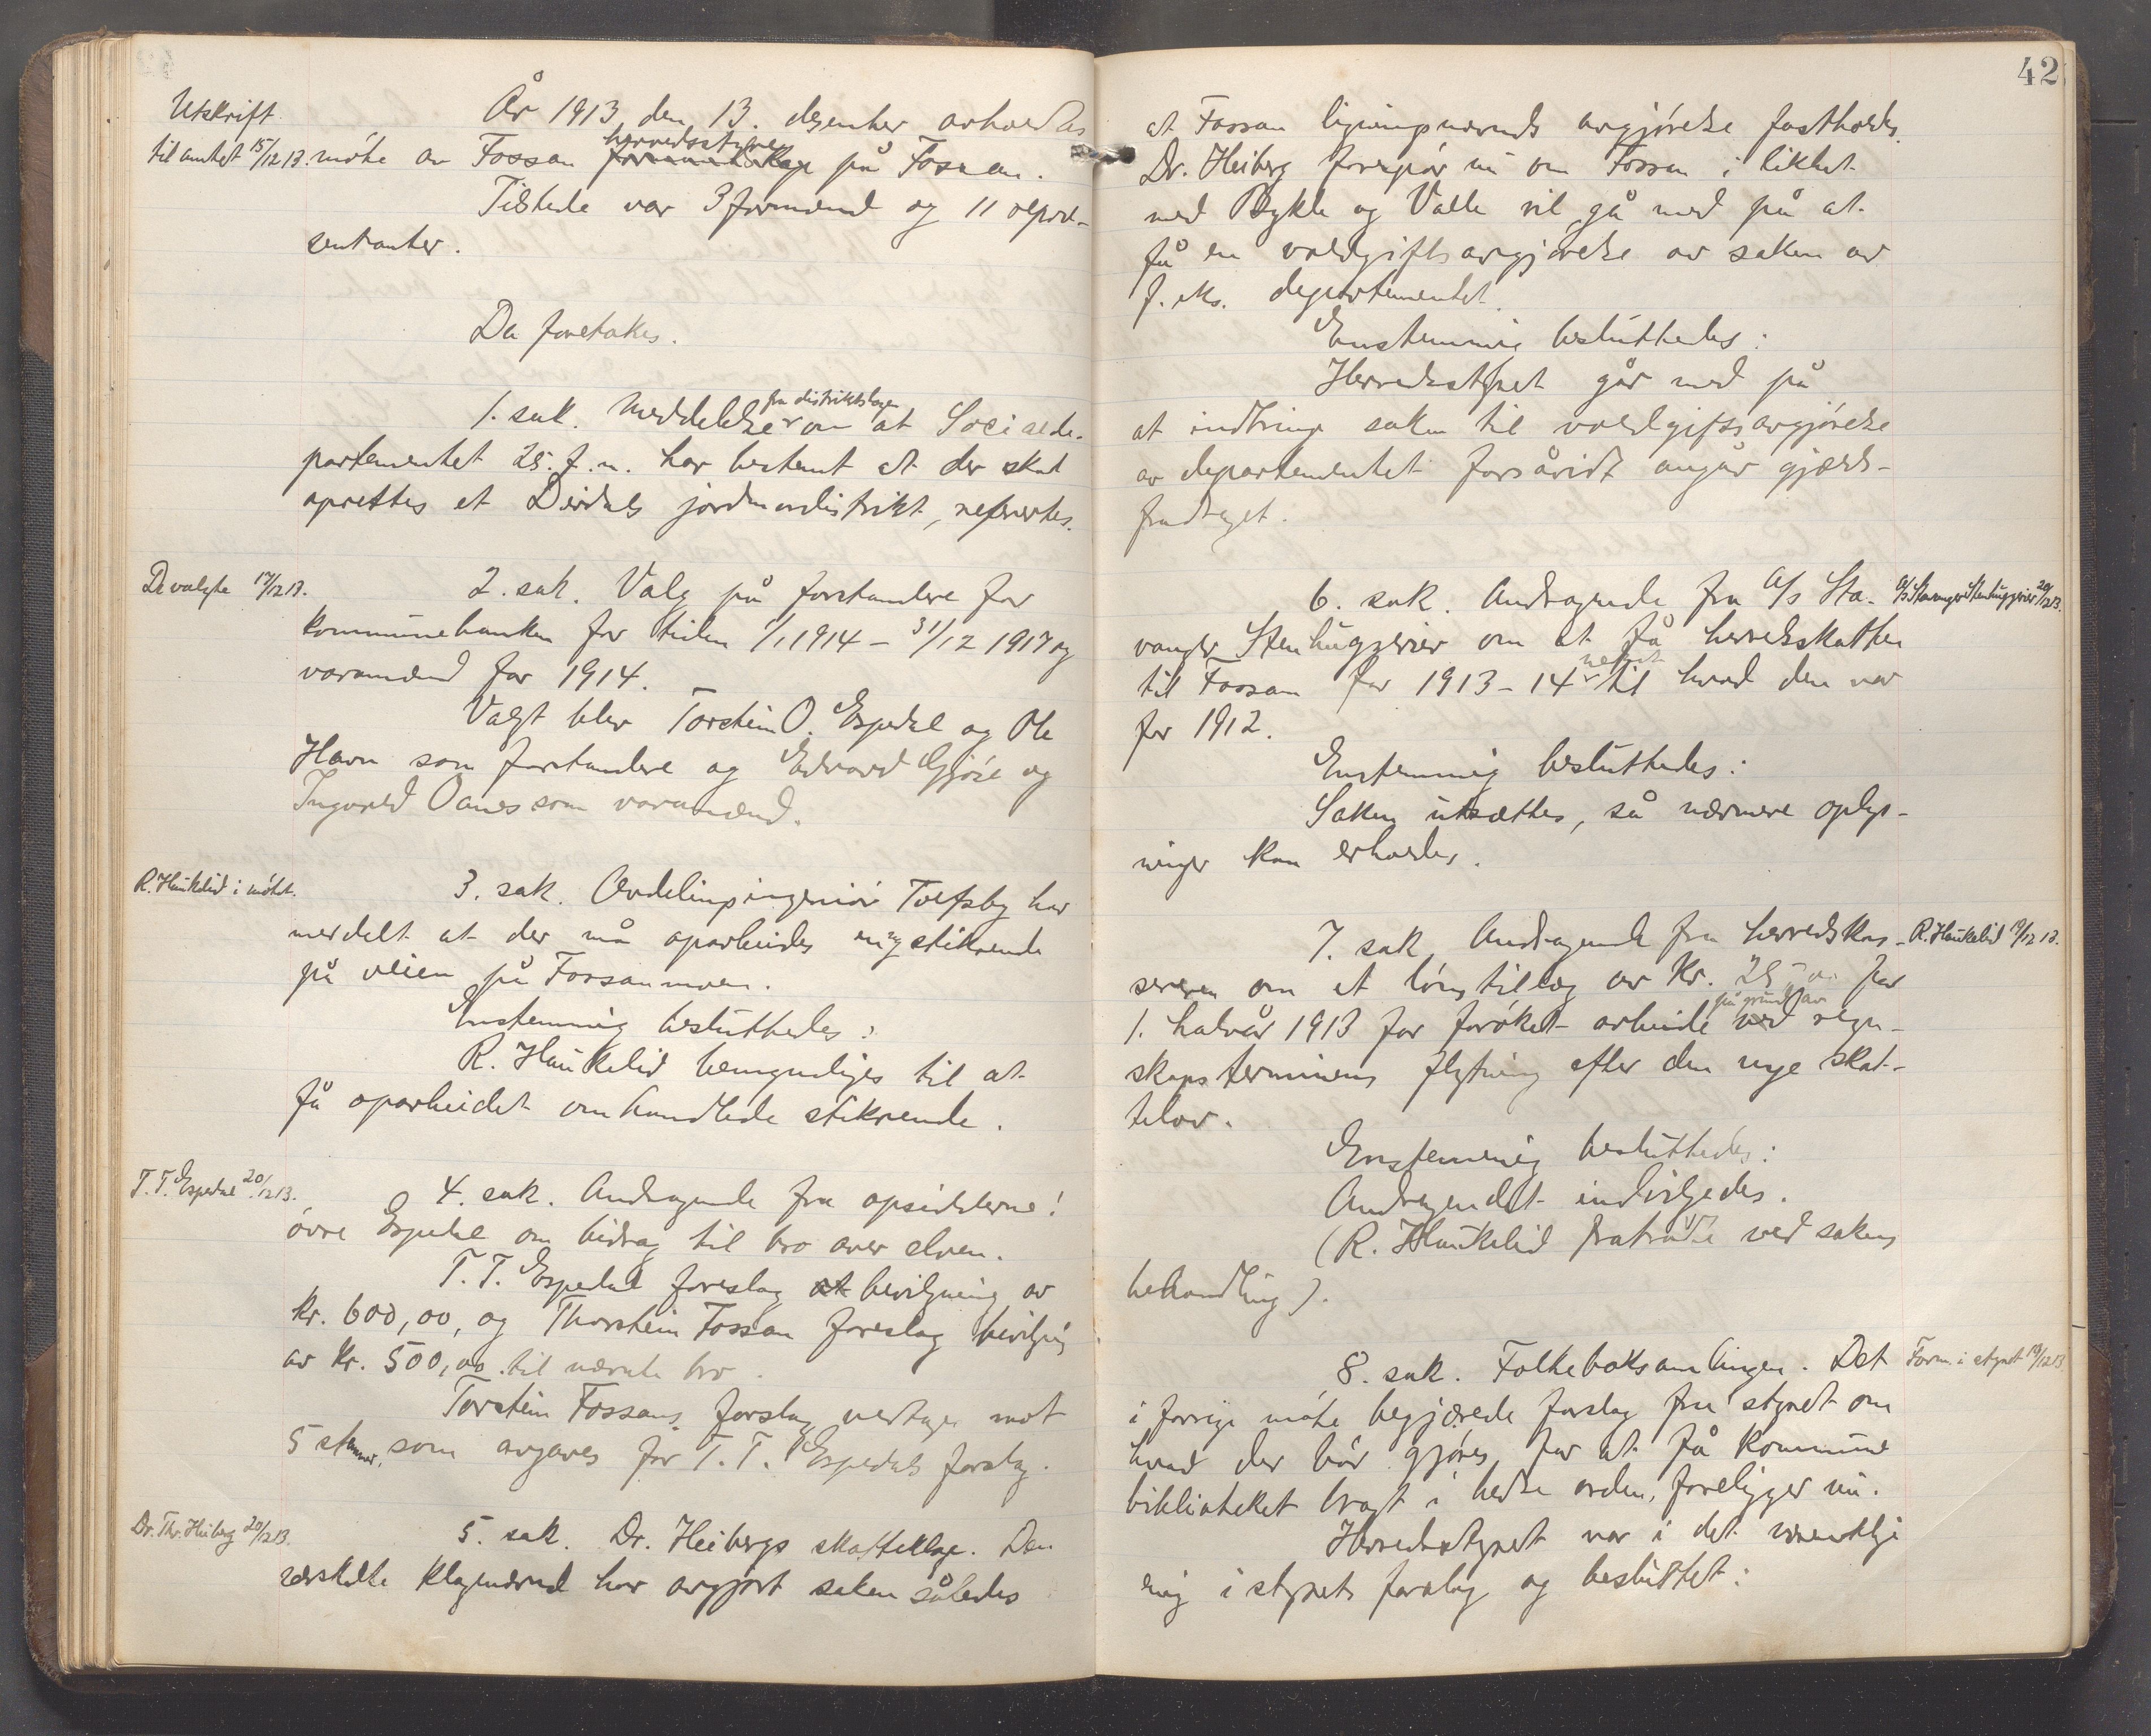 Utskrift
til amtet 15/12 13.
År 1913 den 13. desember avholdtes
møte av Fossan herredsstyre formandskap på Fossan.
Tilstede var 3 formænd og 11 repræ-
sentanter.
Da foretokes.
1. sak. Meddelelse fra distriktslægen om at Socialde-
partementet 25. f. m. har bestemt at der skal
oprettes et Dirdals jordmordistrikt, refereertes.
De valgte 17/12 13.
2. sak. Valg på forstandere for
kommunebanken for tiden 1/1 1914 – 31/12 1917 og
varamænd for 1914.
Valgt blev Torstein O. Espedal og Ole
Havn som forstandere og Edvard Gjøse og
Ingvald Oanes som varamænd.
R. Haukelid i møtet.
3. sak. Avdelingsingeniør Toefsby har
meddelt at der må oparbeides en ny stikrende
på veien på Fossanmoen.
Enstemmig besluttedes:
R. Haukelid bemyndiges til at
få oparbeidet omhandlede stikrende.
T. T. Espedal 20/12 13.
4. sak. Andragende fra opsidderne i
øvre Espedal om bidrag til bro over elven.
T. T. Espedal foreslog at bevilgning av
kr. 600,00, og Thorstein Fossan foreslog bevilgning
av kr. 500,00 til nævnte bro.
Torstein Fossans forslag vedtages mot
5 stemmer, som avgaves for T. T. Espedals forslag.
Dr. Thr. Heiberg 20/12 13.
5. sak. Dr. Heibergs skatteklage. Den
særskilte klagenævnd har avgjort saken således
42
at Fossan ligningsnævnds avgjørelse fastholdes.
Dr. Heiberg forespør nu om Fossan i likhet
med Bykle og Valle vil gå med på at
få en voldgiftsavgjørelse av saken av
f. eks. departementet.
Enstemmig besluttedes:
Herredsstyret går med på
at indbringe saken til voldgiftsavgjørelse
av departementet forsåvidt angår gjælds-
fradraget.
6. sak. Andragende fra A/s Sta-
vanger Stenhuggerier om at få herredsskatten
til Fossan for 1913–14 nedsat til hvad den var
for 1912.
A/s Stavanger Stenhuggerier 20/12 13.
Enstemmig besluttedes:
Saken utsættes, så nærmere oplys-
ninger kan erholdes.
7. sak. Andragende fra herredskas-
sereren om et lønstillæg av kr. 25,00 for
1. halvår 1913 for forøket arbeide på grund av ved regn-
skapsterminens flytning efter den nye skat-
telov.
R. Haukelid 19/12 13.
Enstemmig besluttedes:
Andragendet indvilgedes.
(R. Haukelid fratrådte ved sakens
behandling).
8. sak. Folkeboksamlingen. Det
i forrige møte begjærede forslag fra styret om
hvad der bør gjøres for at få kommune
biblioteket bragt i bedre orden, foreligger nu.
Form. i styret 19/12 13
Herredsstyret var i det væsentlige
enig i styrets forslag og besluttet: